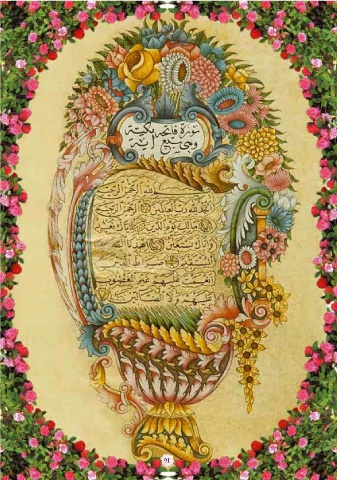 سورة فاتحه مكية
وهي سبع آية
بسم الله الرحمن الرحيم
الحمد لله رب العالمين الرحمن الر
حيم مالك يوم الدين اياك نعبد
واياك نستعين اهدنا الصراط
المستقيم صراط الذين
انعمت عليهم غير المغضوب
عليهم ولا الضالين